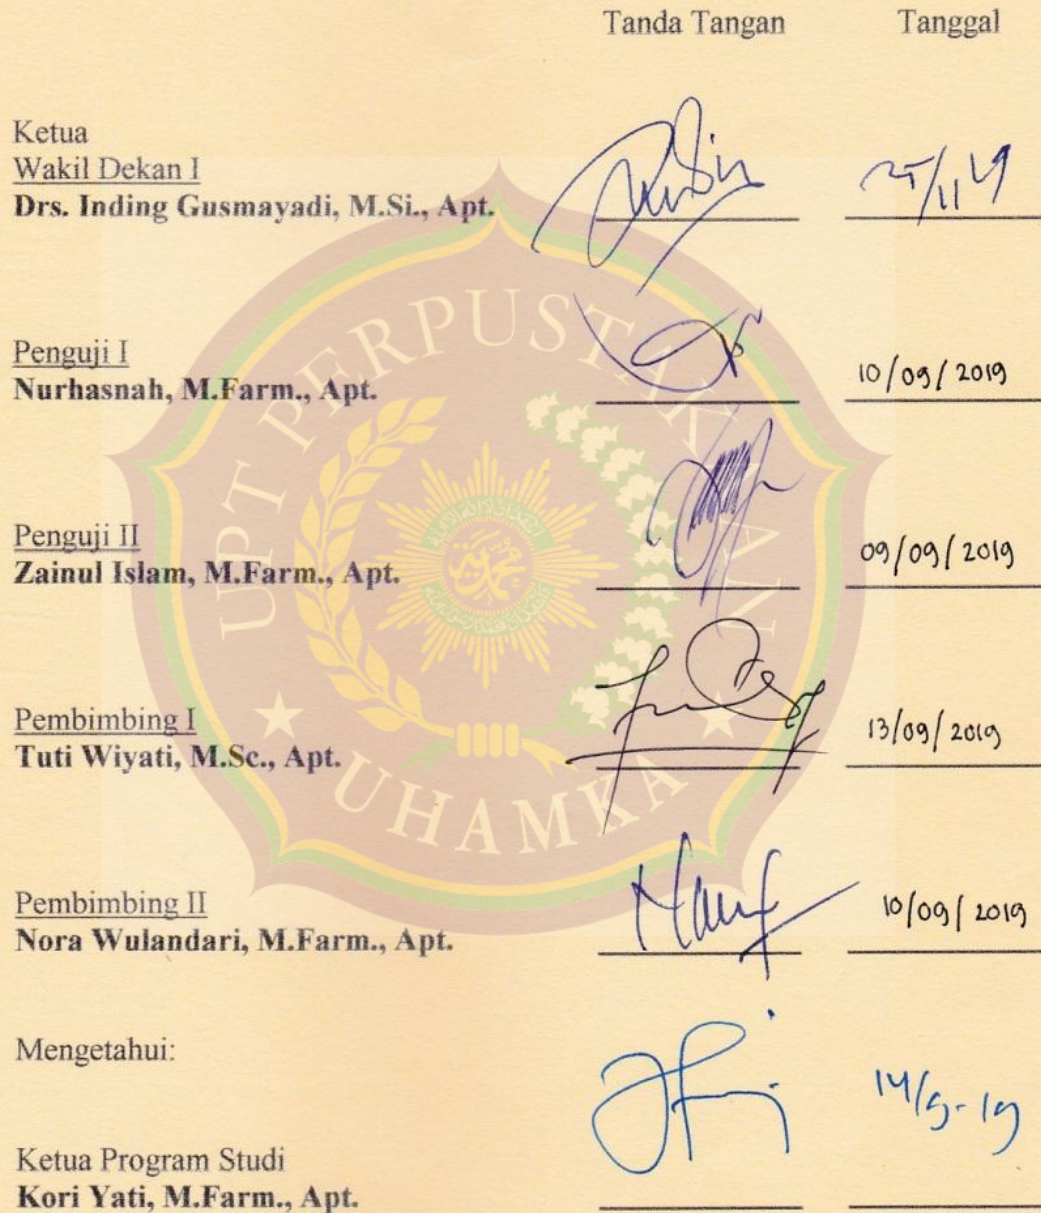 Tanda Tangan Tanggal
Ketua
Wakil Dekan I
Drs. Inding Gusmayadi, M.Si., Apt.
Penguji I
Nurhasnah, M.Farm., Apt. 10/09/2019
Penguji II
Zainul Islam, M.Farm., Apt. 09/09/2019
Pembimbing I
Tuti Wiyati, M.Sc., Apt. 13/09/2019
Pembimbing II
Nora Wulandari, M.Farm., Apt. 10/09/2019
Mengetahui:
14/9-19
Ketua Program Studi
Kori Yati, M.Farm., Apt.
UPT PERPUSTAKAAN
UHAMKA